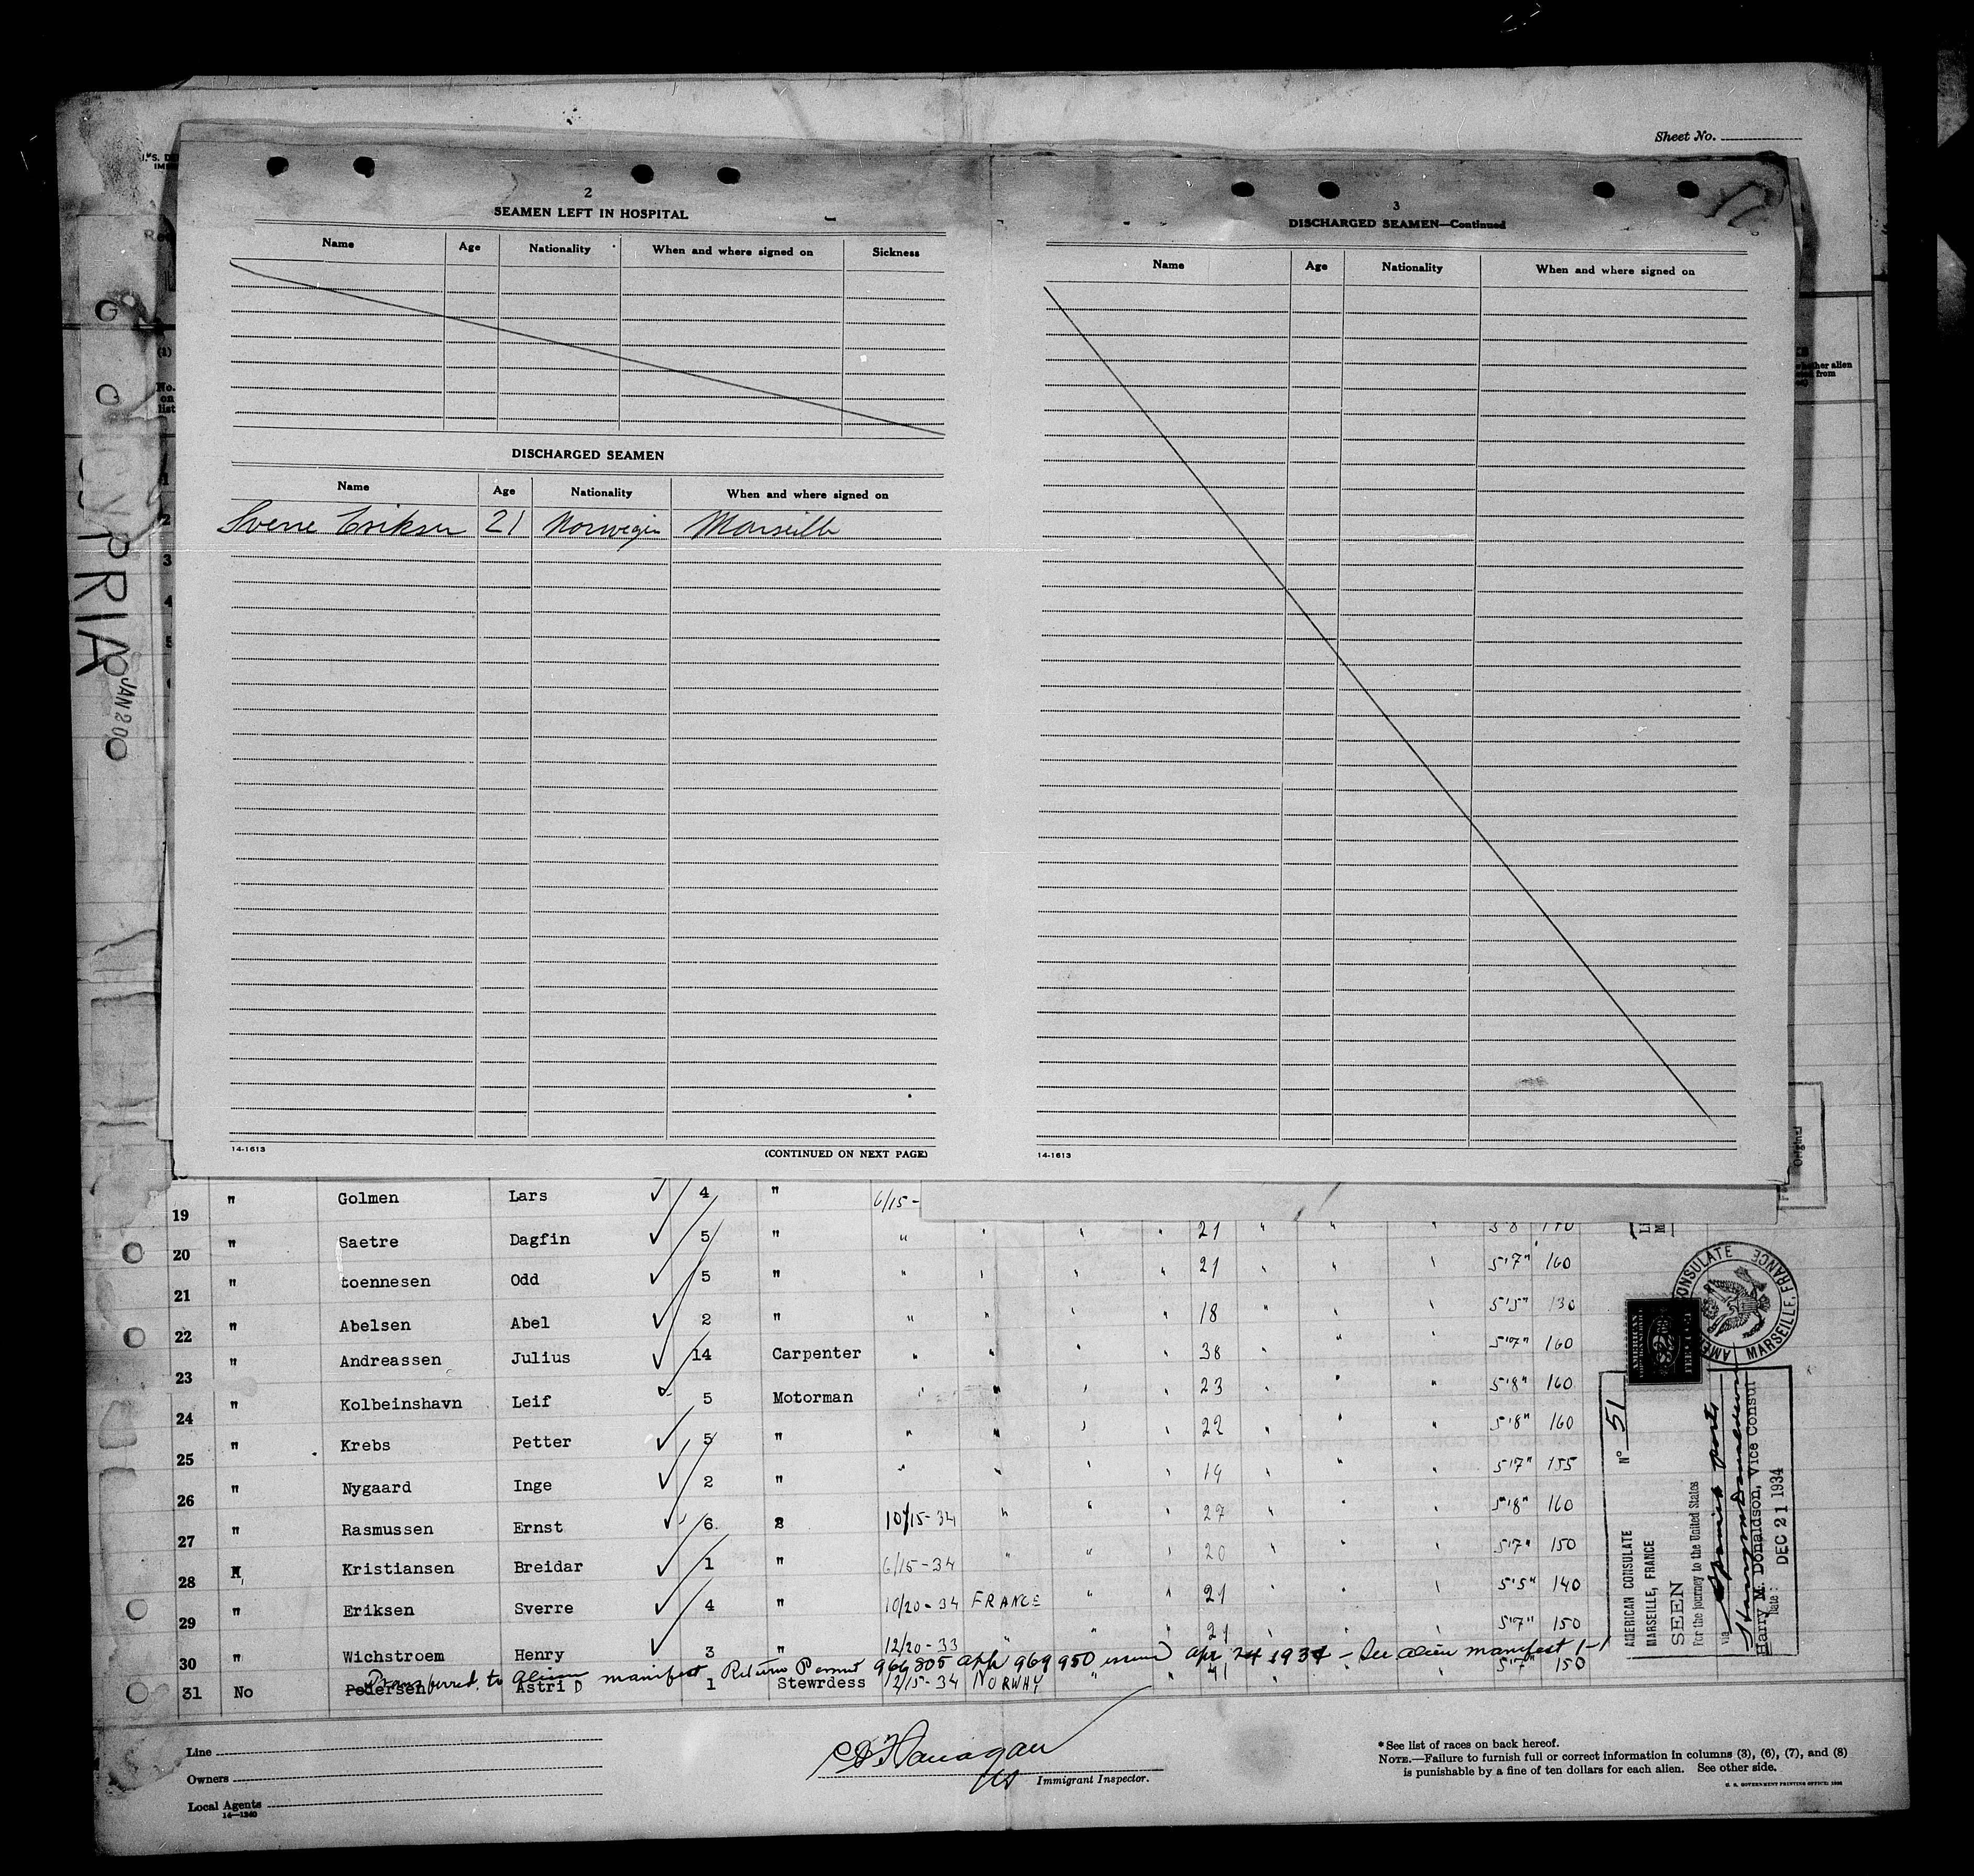 Sheet No.
2
SEAMEN LEFT IN HOSPITAL
Name Age Nationality When and where signed on Sickness
DISCHARGED SEAMEN
Name Age Nationality When and where signed on
Sverre Eriksen 21 Norwegin Marseille
14-1613 (CONTINUED ON NEXT PAGE)
3
DISCHARGED SEAMEN—Continued
Name Age Nationality When and where signed on
14-1613
(1)
No. on list
CYPRIA
JAN 20
Original
" Golmen Lars 4 " 6/15-
19 " Saetre Dagfin 5 " " 21 5'8 170
20 " toennesen Odd 5 " " 21 5'7" 160
21 " Abelsen Abel 2 " " 18 5'5" 130
22 " Andreassen Julius 14 Carpenter " 38 5'7" 160
23 " Kolbeinshavn Leif 5 Motorman " 23 5'8" 160
24 " Krebs Petter 5 " " 22 5'8" 160
25 " Nygaard Inge 2 " " 19 5'7" 155
26 " Rasmussen Ernst 6 " 10/15-34 " 27 5'8" 160
27 " Kristiansen Breidar 1 " 6/15-34 " 20 5'7" 150
28 " Eriksen Sverre 4 " 10/20-34 FRANCE " 21 5'5" 140
29 " Wichstroem Henry 3 " 12/20-33 " 21 5'7" 150
30 Transferred to alien manifest Return Permit 966805 969950 Apr 24 1934 - See alien manifest 1-1
31 No Pedersen Astri D 1 Stewrdess 12/15-34 NORWAY " 41 5'7" 150
AMERICAN CONSULATE MARSEILLE, FRANCE
AMERICAN
$2
Nº 51
AMERICAN CONSULATE
MARSEILLE, FRANCE
SEEN
For the journey to the United States
via Spanish ports
Harry M. Donaldson, Vice Consul
Date: DEC 21 1934
Line
Owners
Local Agents
14—1240
Flanagan
Immigrant Inspector.
*See list of races on back hereof.
NOTE.—Failure to furnish full or correct information in columns (3), (6), (7), and (8)
is punishable by a fine of ten dollars for each alien. See other side.
U. S. GOVERNMENT PRINTING OFFICE: